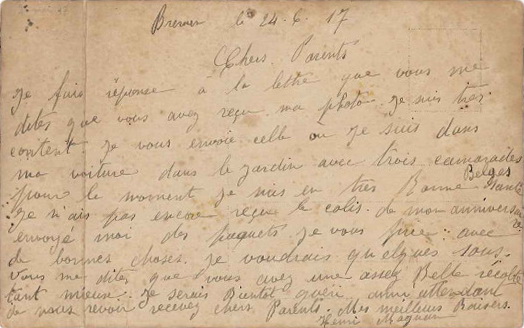 Bremen le 24. 6. 17
Chers Parents
Je fais réponse a la lettre que vous me
dites que vous avez reçu ma photo. Je suis très
content Je vous envoie celle où Je suis dans
ma voiture dans le Jardin avec trois camarades
Belges
pour le moment Je suis en très Bonne Santé
Je n'ais pas encore reçu le colis de mon anniversaire
envoyé moi des paquets Je vous prie avec
de bonnes choses. Je voudrais quelques sous.
Vous me dites que vous avez une assez Belle récolte
tant mieux. Je serais Bientôt guéri, attendant
de vous revoir recevez chers Parents. Mes meilleurs Baisers.
Henri